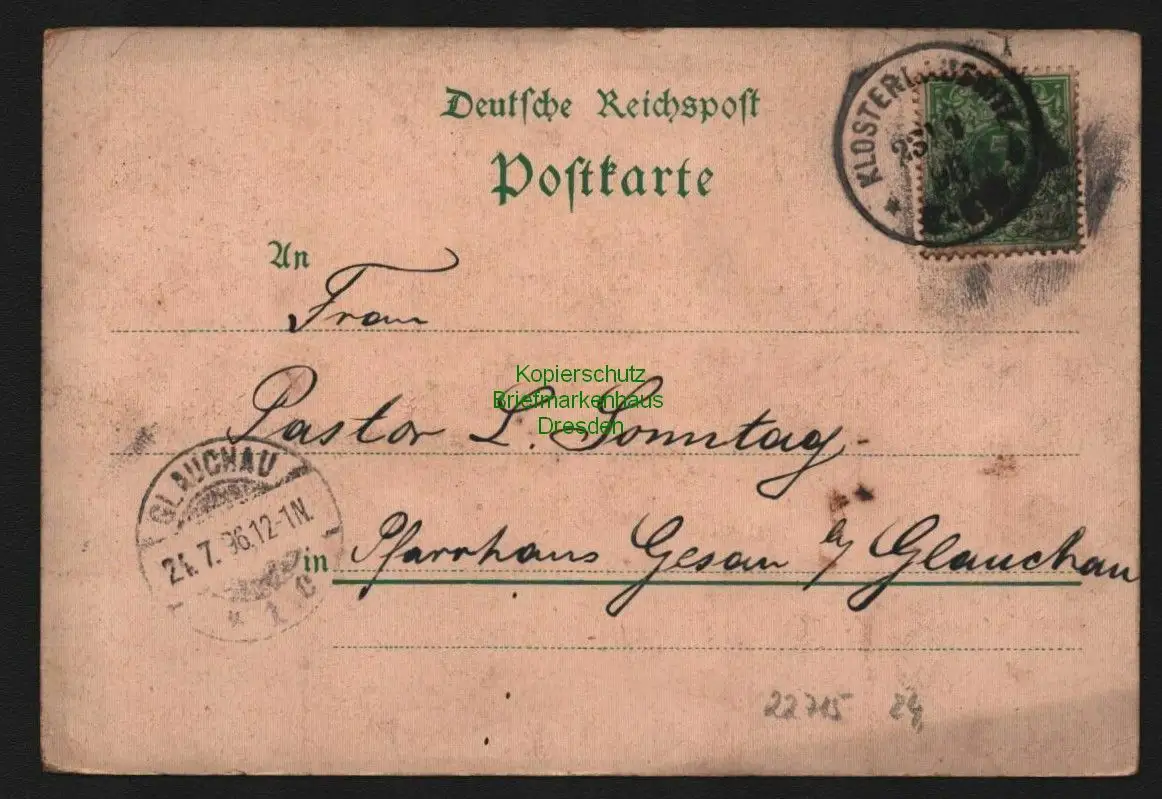 Deutsche Reichspost
Postkarte
KLOSTERLAUSNITZ
23
96
An
Frau
Kopierschutz
Briefmarkenhaus
Dresden
Pastor L. Sonntag.
GLAUCHAU
24.7.96.12-1N.
* 1 c
in Pfarrhaus Gesau b/ Glauchau
22715